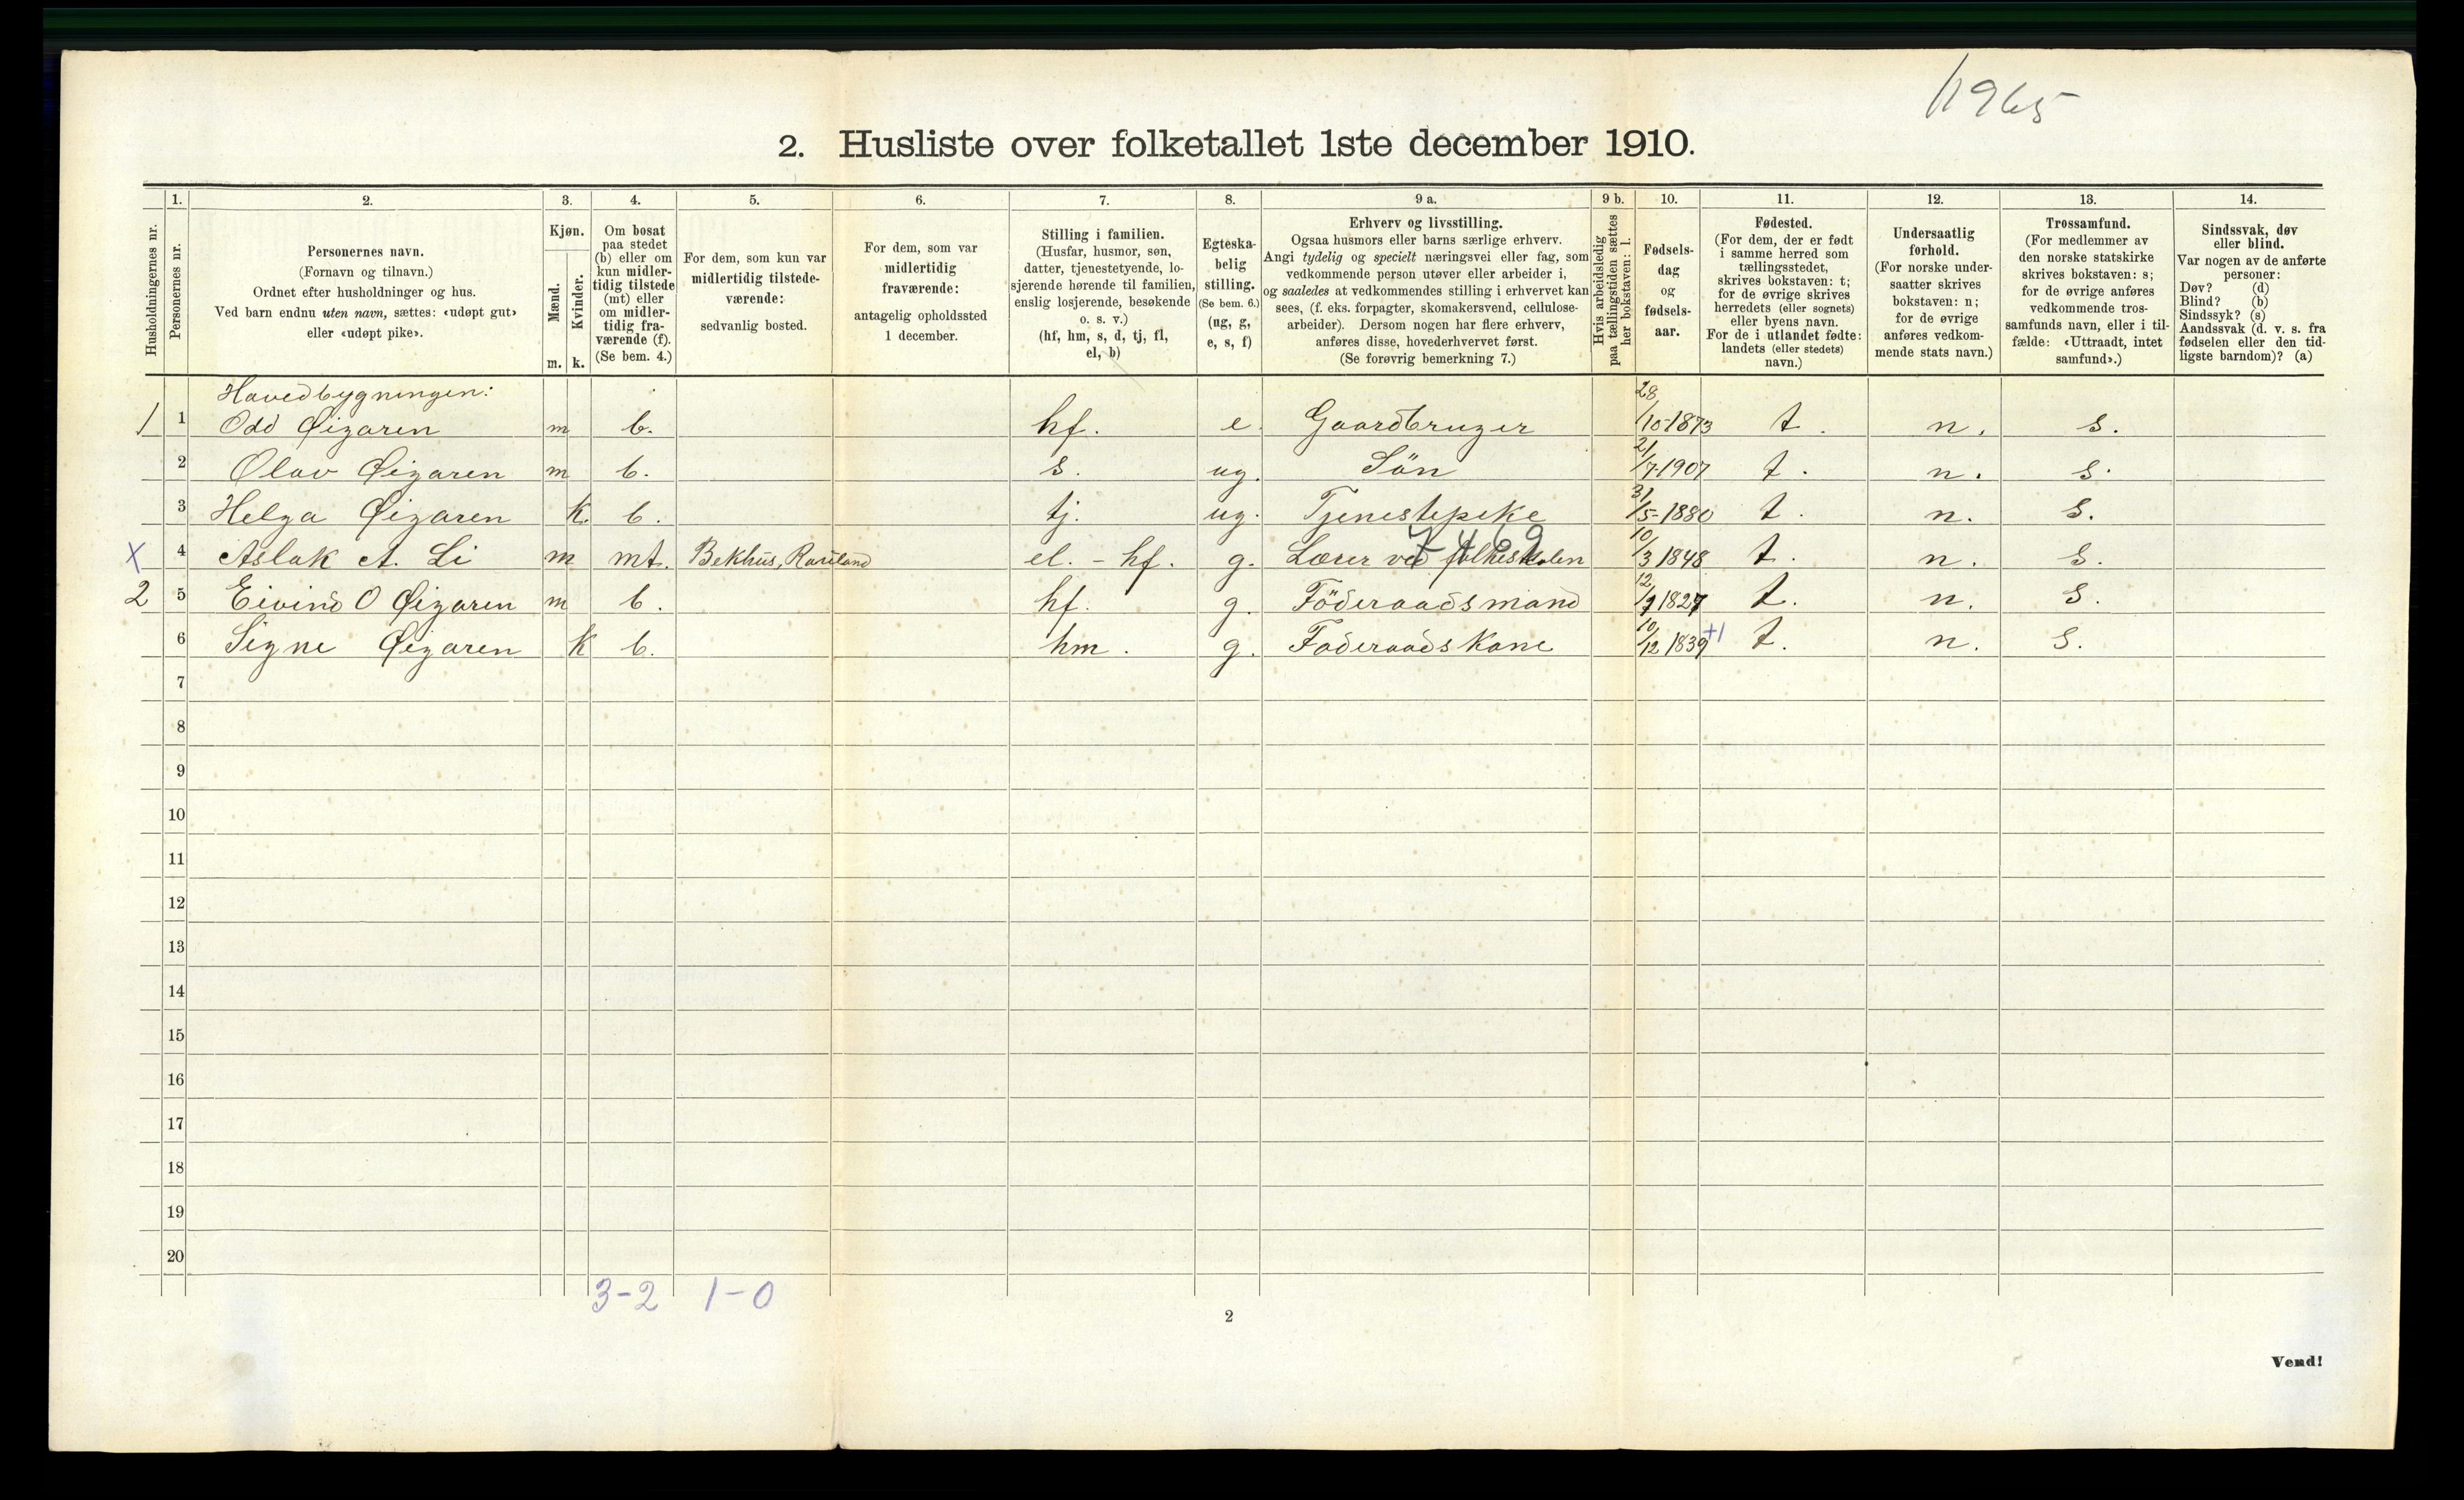 1965
2. Husliste over folketallet 1ste december 1910.
1. 2. 3. 4. 5. 6. 7. 8. 9 a. 9 b. 10. 11. 12. 13. 14.
Husholdningernes nr.
Personernes nr.
Personernes navn.
(Fornavn og tilnavn.)
Ordnet efter husholdninger og hus.
Ved barn endnu uten navn, sættes: «udøpt gut»
eller «udøpt pike».
Kjøn.
Mænd.
Kvinder.
m. k.
Om bosat
paa stedet
(b) eller om
kun midler-
tidig tilstede
(mt) eller
om midler-
tidig fra-
værende (f).
(Se bem. 4.)
For dem, som kun var
midlertidig tilstede-
værende:
sedvanlig bosted.
For dem, som var
midlertidig
fraværende:
antagelig opholdssted
1 december.
Stilling i familien.
(Husfar, husmor, søn,
datter, tjenestetyende, lo-
sjerende hørende til familien,
enslig losjerende, besøkende
o. s. v.)
(hf, hm, s, d, tj, fl,
el, b)
Egteska-
belig
stilling.
(Se bem. 6.)
(ug, g,
e, s, f)
Erhverv og livsstilling.
Ogsaa husmors eller barns særlige erhverv.
Angi tydelig og specielt næringsvei eller fag, som
vedkommende person utøver eller arbeider i,
og saaledes at vedkommendes stilling i erhvervet kan
sees, (f. eks. forpagter, skomakersvend, cellulose-
arbeider). Dersom nogen har flere erhverv,
anføres disse, hovederhvervet først.
(Se forøvrig bemerkning 7.)
Hvis arbeidsledig
paa tællingstiden sættes
her bokstaven: l.
Fødsels-
dag
og
fødsels-
aar.
Fødested.
(For dem, der er født
i samme herred som
tællingsstedet,
skrives bokstaven: t;
for de øvrige skrives
herredets (eller sognets)
eller byens navn.
For de i utlandet fødte:
landets (eller stedets)
navn.)
Undersaatlig
forhold.
(For norske under-
saatter skrives
bokstaven: n;
for de øvrige
anføres vedkom-
mende stats navn.)
Trossamfund.
(For medlemmer av
den norske statskirke
skrives bokstaven: s;
for de øvrige anføres
vedkommende tros-
samfunds navn, eller i til-
fælde: «Uttraadt, intet
samfund».)
Sindssvak, døv
eller blind.
Var nogen av de anførte
personer:
Døv? (d)
Blind? (b)
Sindssyk? (s)
Aandssvak (d. v. s. fra
fødselen eller den tid-
ligste barndom)? (a)
Hovedbygningen:
1 1 Odd Øigaren m b. hf. e. Gaardbruger 28/10-1873 t. n. s.
2 Olav Øigaren m b. s. ug. Sön 21/7-1907 t. n. s.
3 Helga Øigaren k. b. tj. ug. Tjenestepike 31/5-1880 t. n. s.
7469
x 4 Aslak A. Li m mt. Bekhus, Rauland el. - hf. g. Lærer ved folkeskolen 10/3 1848 t. n. s.
2 5 Eivind O Øigaren m b. hf. g. Föderaadsmand 12/9 1827 t. n. s.
6 Signe Øigaren k b. hm. g. Foderaadskone 10/12 1839 +1 t. n. s.
7
8
9
10
11
12
13
14
15
16
17
18
19
20
3-2 1-0
2
Vend!